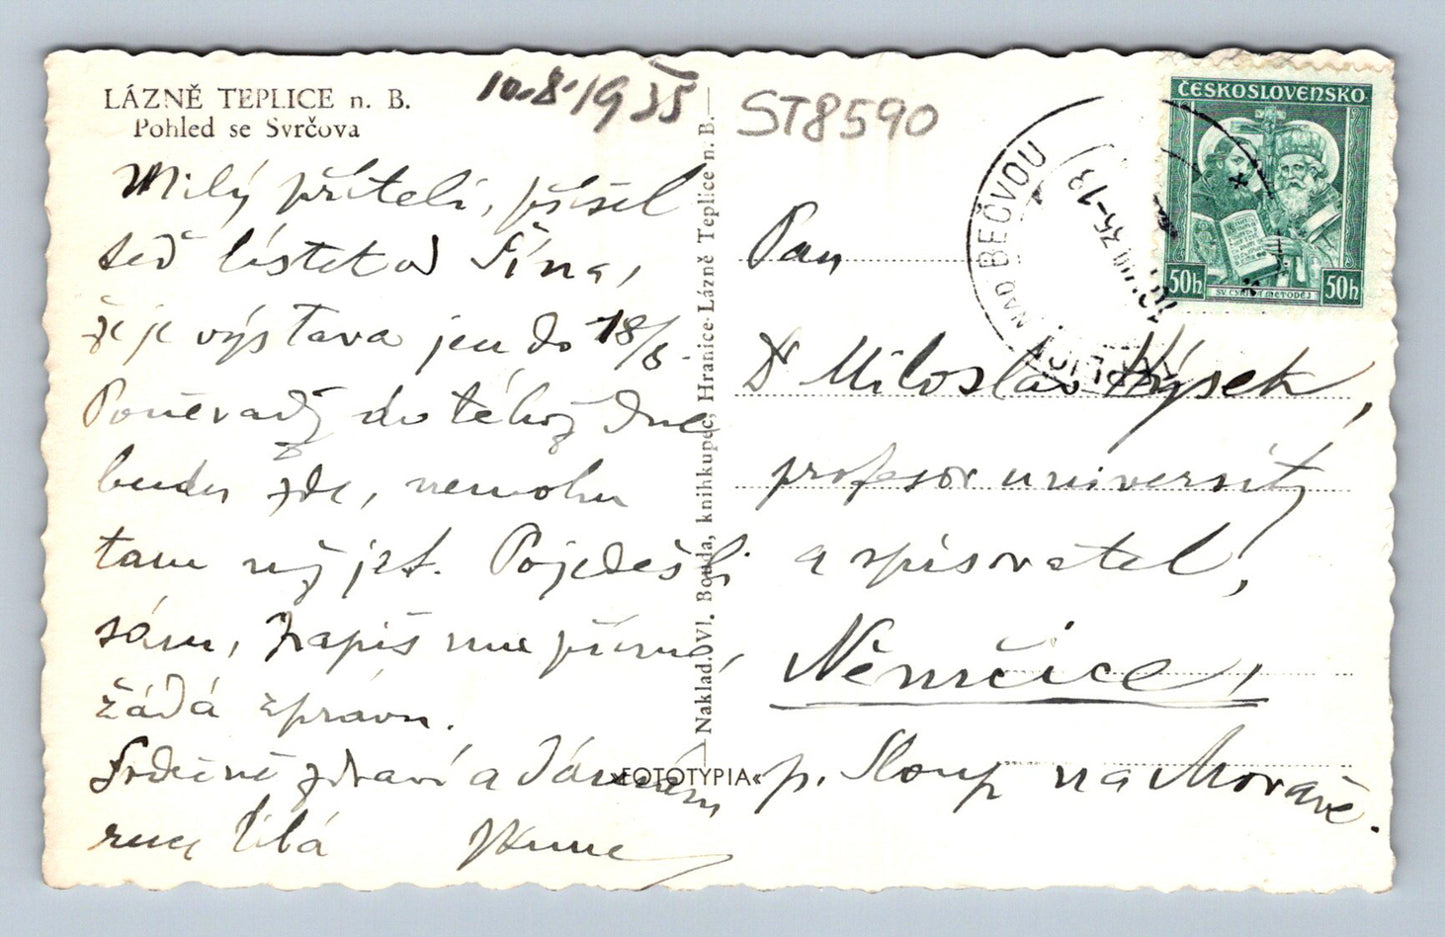 LÁZNĚ TEPLICE n. B.
Pohled se Svrčova
10.8.1935
ST8590
Milý příteli, přišel
teď lístek od Šína,
že je výstava jen do 18/8.
Poněvadž do téhož dne
budu zde, nemohu
tam už jet. Pojedeš-li
sám, napiš mne přímo,
žádá zprávu.
Srdečně zdraví a dámám
ruce líbá
Naklad. Vl. Bouda, knihkupec, Hranice-Lázně Teplice n. B.
»FOTOTYPIA«
Pan
Dr Miloslav Hýsek,
profesor university
a spisovatel,
Němčice,
p. Sloup na Moravě.
ČESKOSLOVENSKO
50h
SV. CYRIL A METODĚJ
50h
NAD BEČVOU
10.VIII.35-13